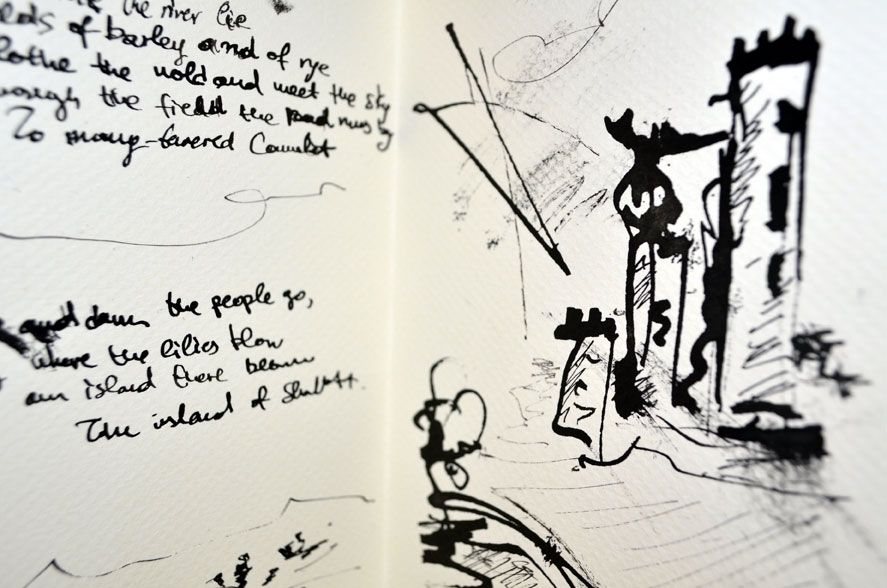 the river lie
of barley and of rye
clothe the wold and meet the sky
through the field the road runs by
To many-towered Camelot
and down the people go,
where the lilies blow
an island there
The island of Shalott.